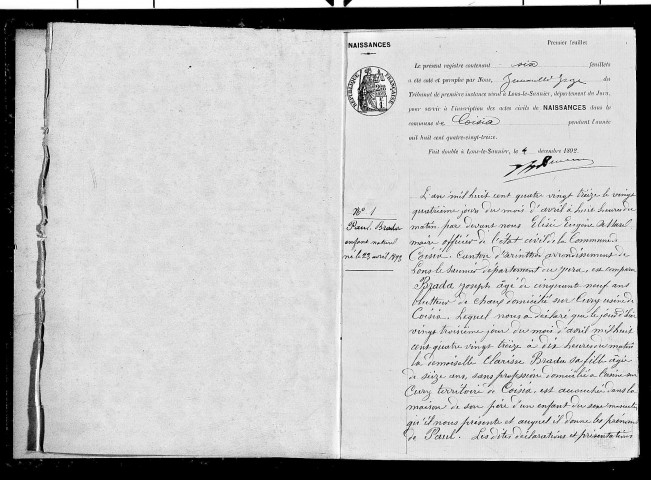 NAISSANCES
Premier feuillet
Le présent registre contenant six feuillets
a été coté et paraphé par Nous, Juge du
Tribunal de première instance séant à Lons-le-Saunier, département du Jura,
pour servir à l'inscription des actes civils de NAISSANCES dans la
commune de Coisia pendant l'année
mil huit cent quatre-vingt-treize.
Fait double à Lons-le-Saunier, le 4 décembre 1892
RÉPUBLIQUE FRANÇAISE
N° 1
Paul Brada
enfant naturel
né le 23 avril 1893
L'an mil huit cent quatre vingt treize le vingt
quatrième jour du mois d'avril à huit heures du
matin par devant nous Elisée Eugène
maire officier de l'état civil de la Commune
Coisia, Canton d'Arinthod arrondissement de
Lons le Saunier département du Jura, est comparu
Brada Joseph âgé de cinquante neuf ans
de chaux domicilié sur usine de
Coisia, lequel nous a déclaré que le jour d'hier
vingt troisième jour du mois d'avril mil huit
cent quatre vingt treize à dix heures du matin
la demoiselle Clarisse Brada sa fille âgée
de seize ans, sans profession domiciliée à l'usine sur
territoire de Coisia, est accouchée dans la
maison de son père d'un enfant du sexe masculin
qu'il nous présente et auquel il donne les prénoms
de Paul. Les dites déclarations et présentations